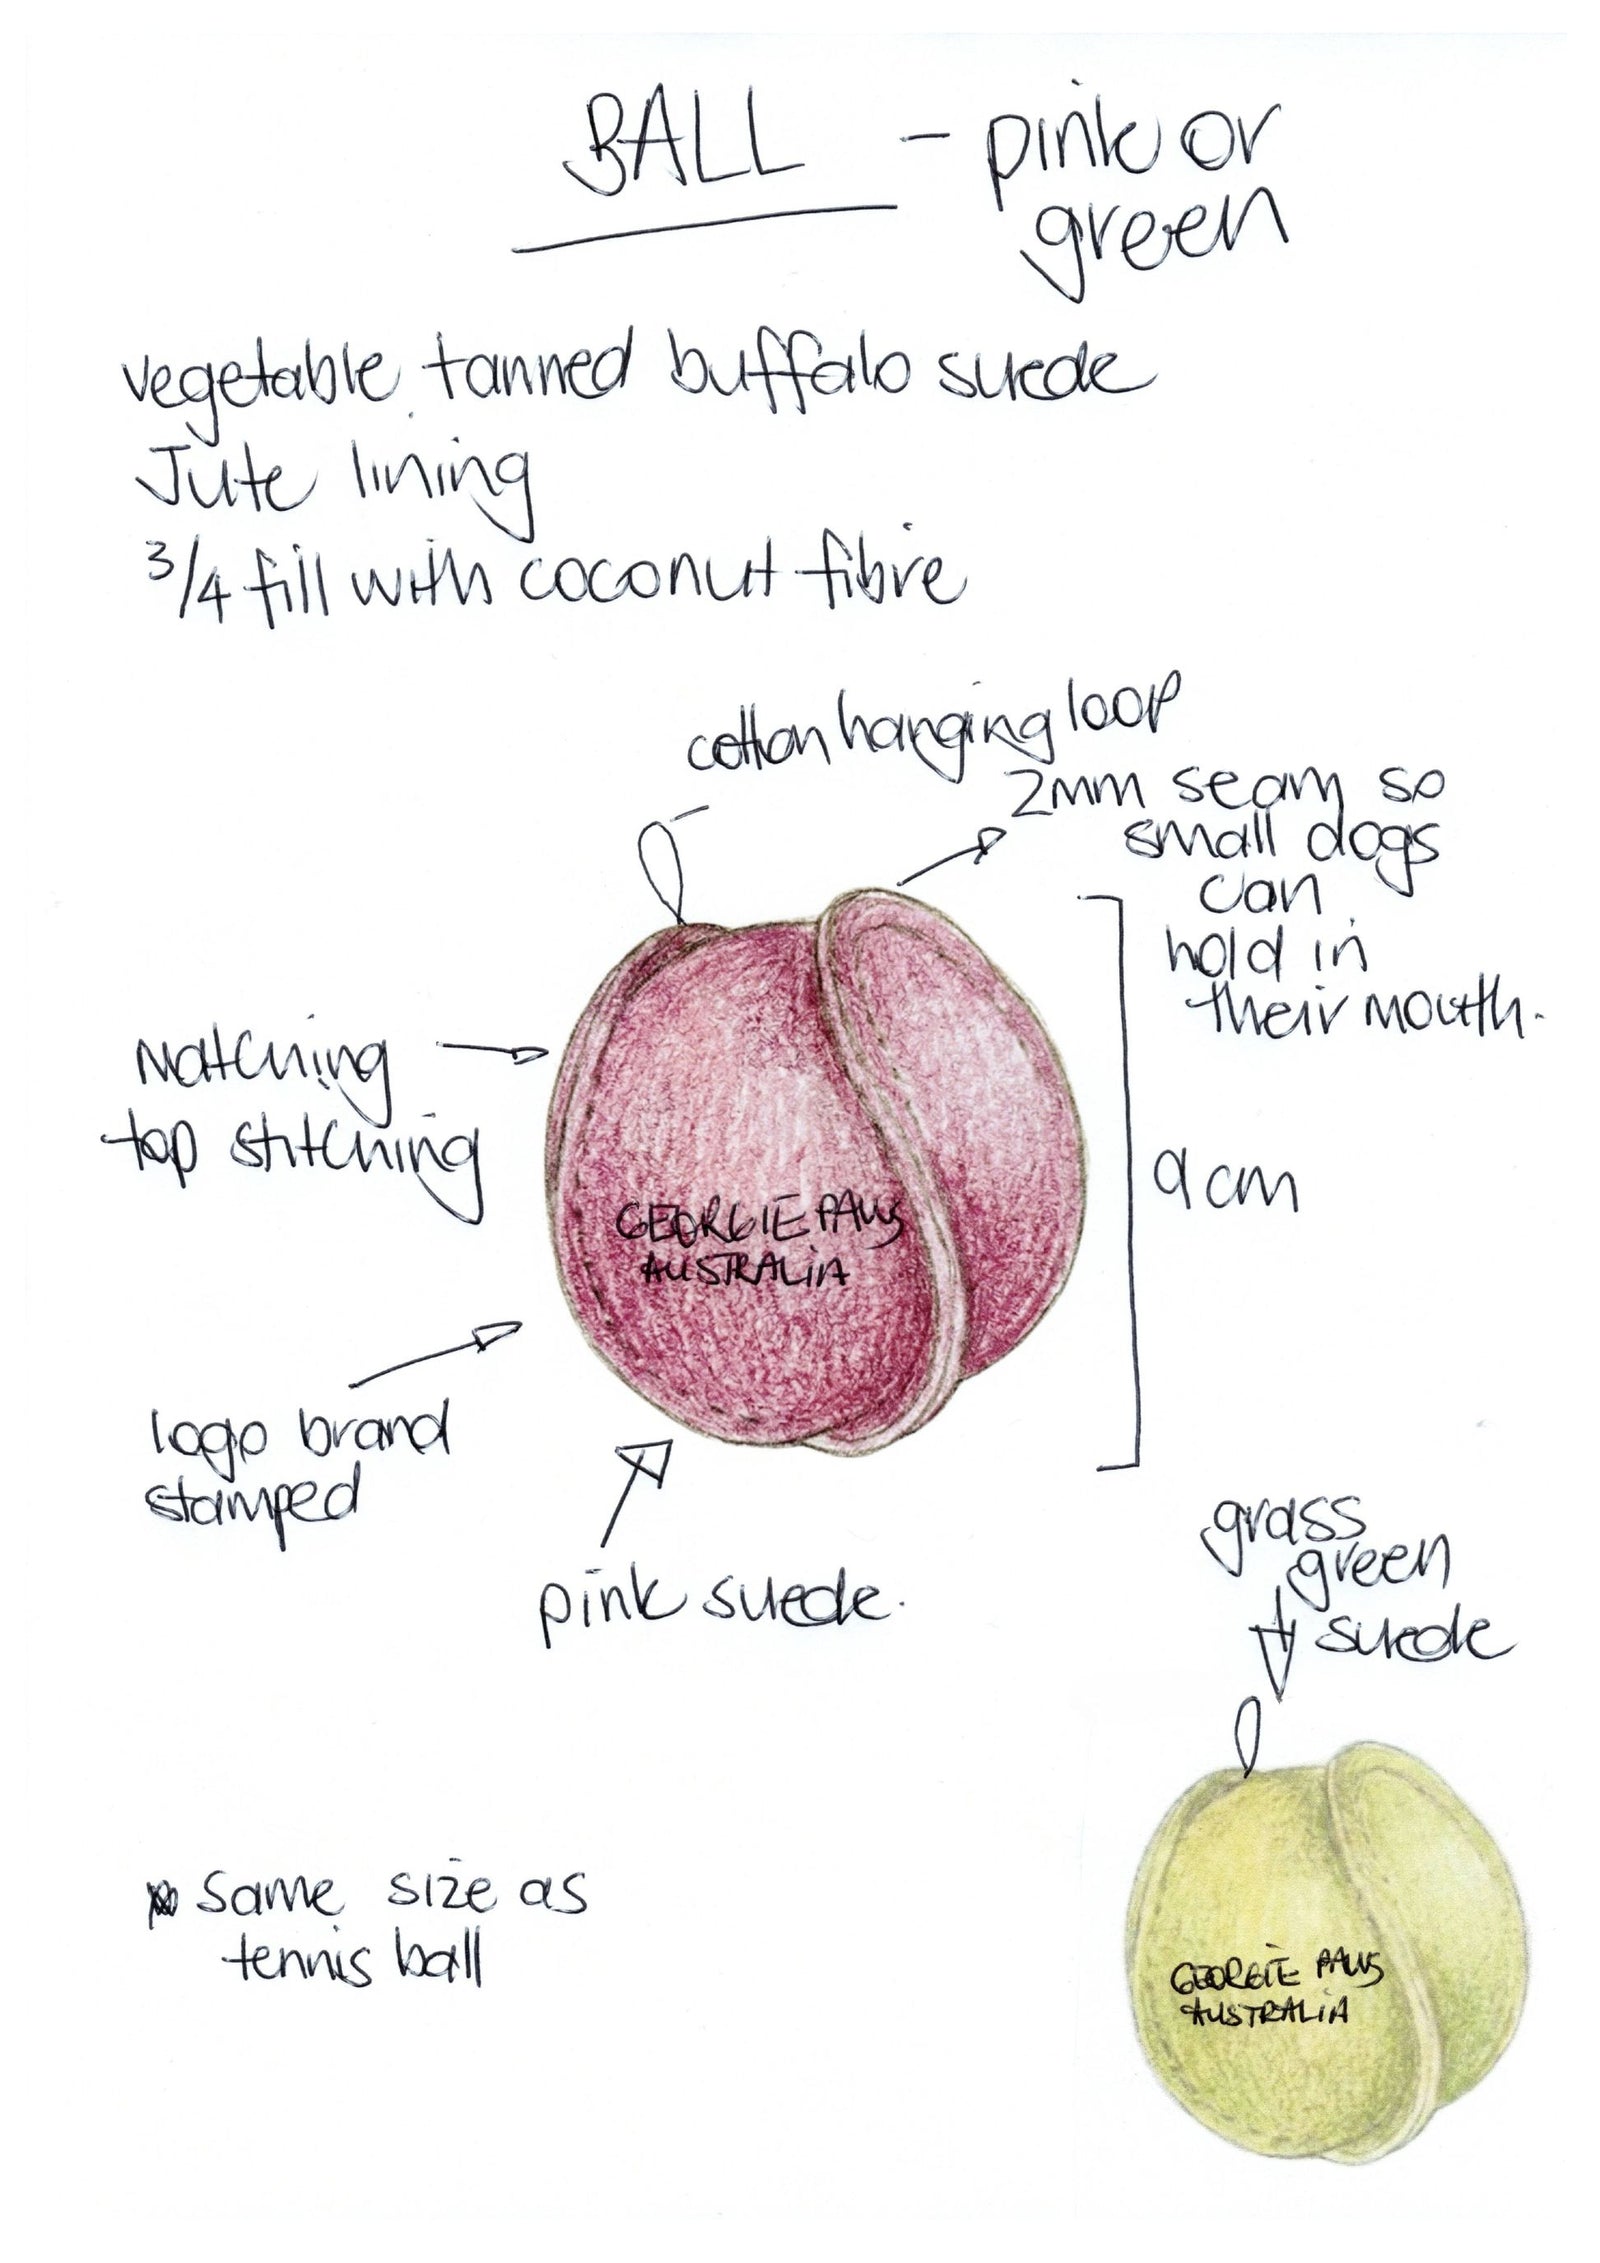 BALL - pink or
green
vegetable tanned buffalo suede
Jute lining
3/4 fill with coconut fibre
cotton hanging loop
2mm seam so
small dogs
can
hold in
their mouth.
Matching
top stitching
9cm
GEORGIE PAWS
AUSTRALIA
logo brand
stamped
pink suede.
grass
green
suede
same size as
tennis ball
GEORGIE PAWS
AUSTRALIA